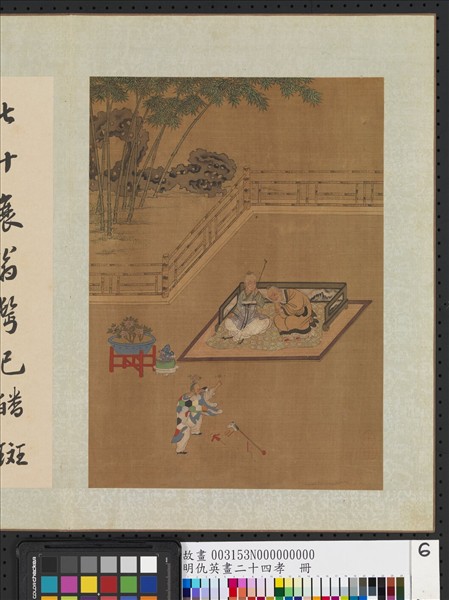 七十衰翁鬢已皤斑
故畫 003153N000000000
明仇英畫二十四孝 冊
6
colorchecker